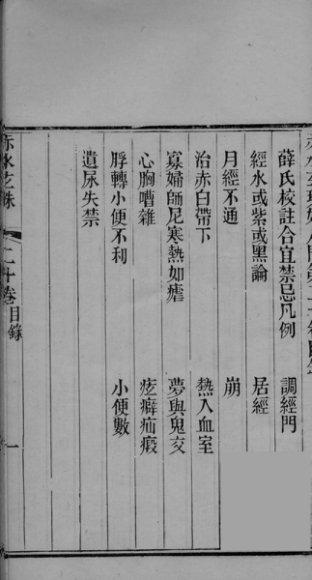 薛氏校註合宜禁忌凡例
調經門
經水或紫或黑論
居經
月經不通
崩
治赤白帶下
熱入血室
寡婦師尼寒熱如瘧
夢與鬼交
心胸嘈雜
痃癖疝瘕
脬轉小便不利
小便數
遺尿失禁
赤水玄珠
二十卷目錄
一